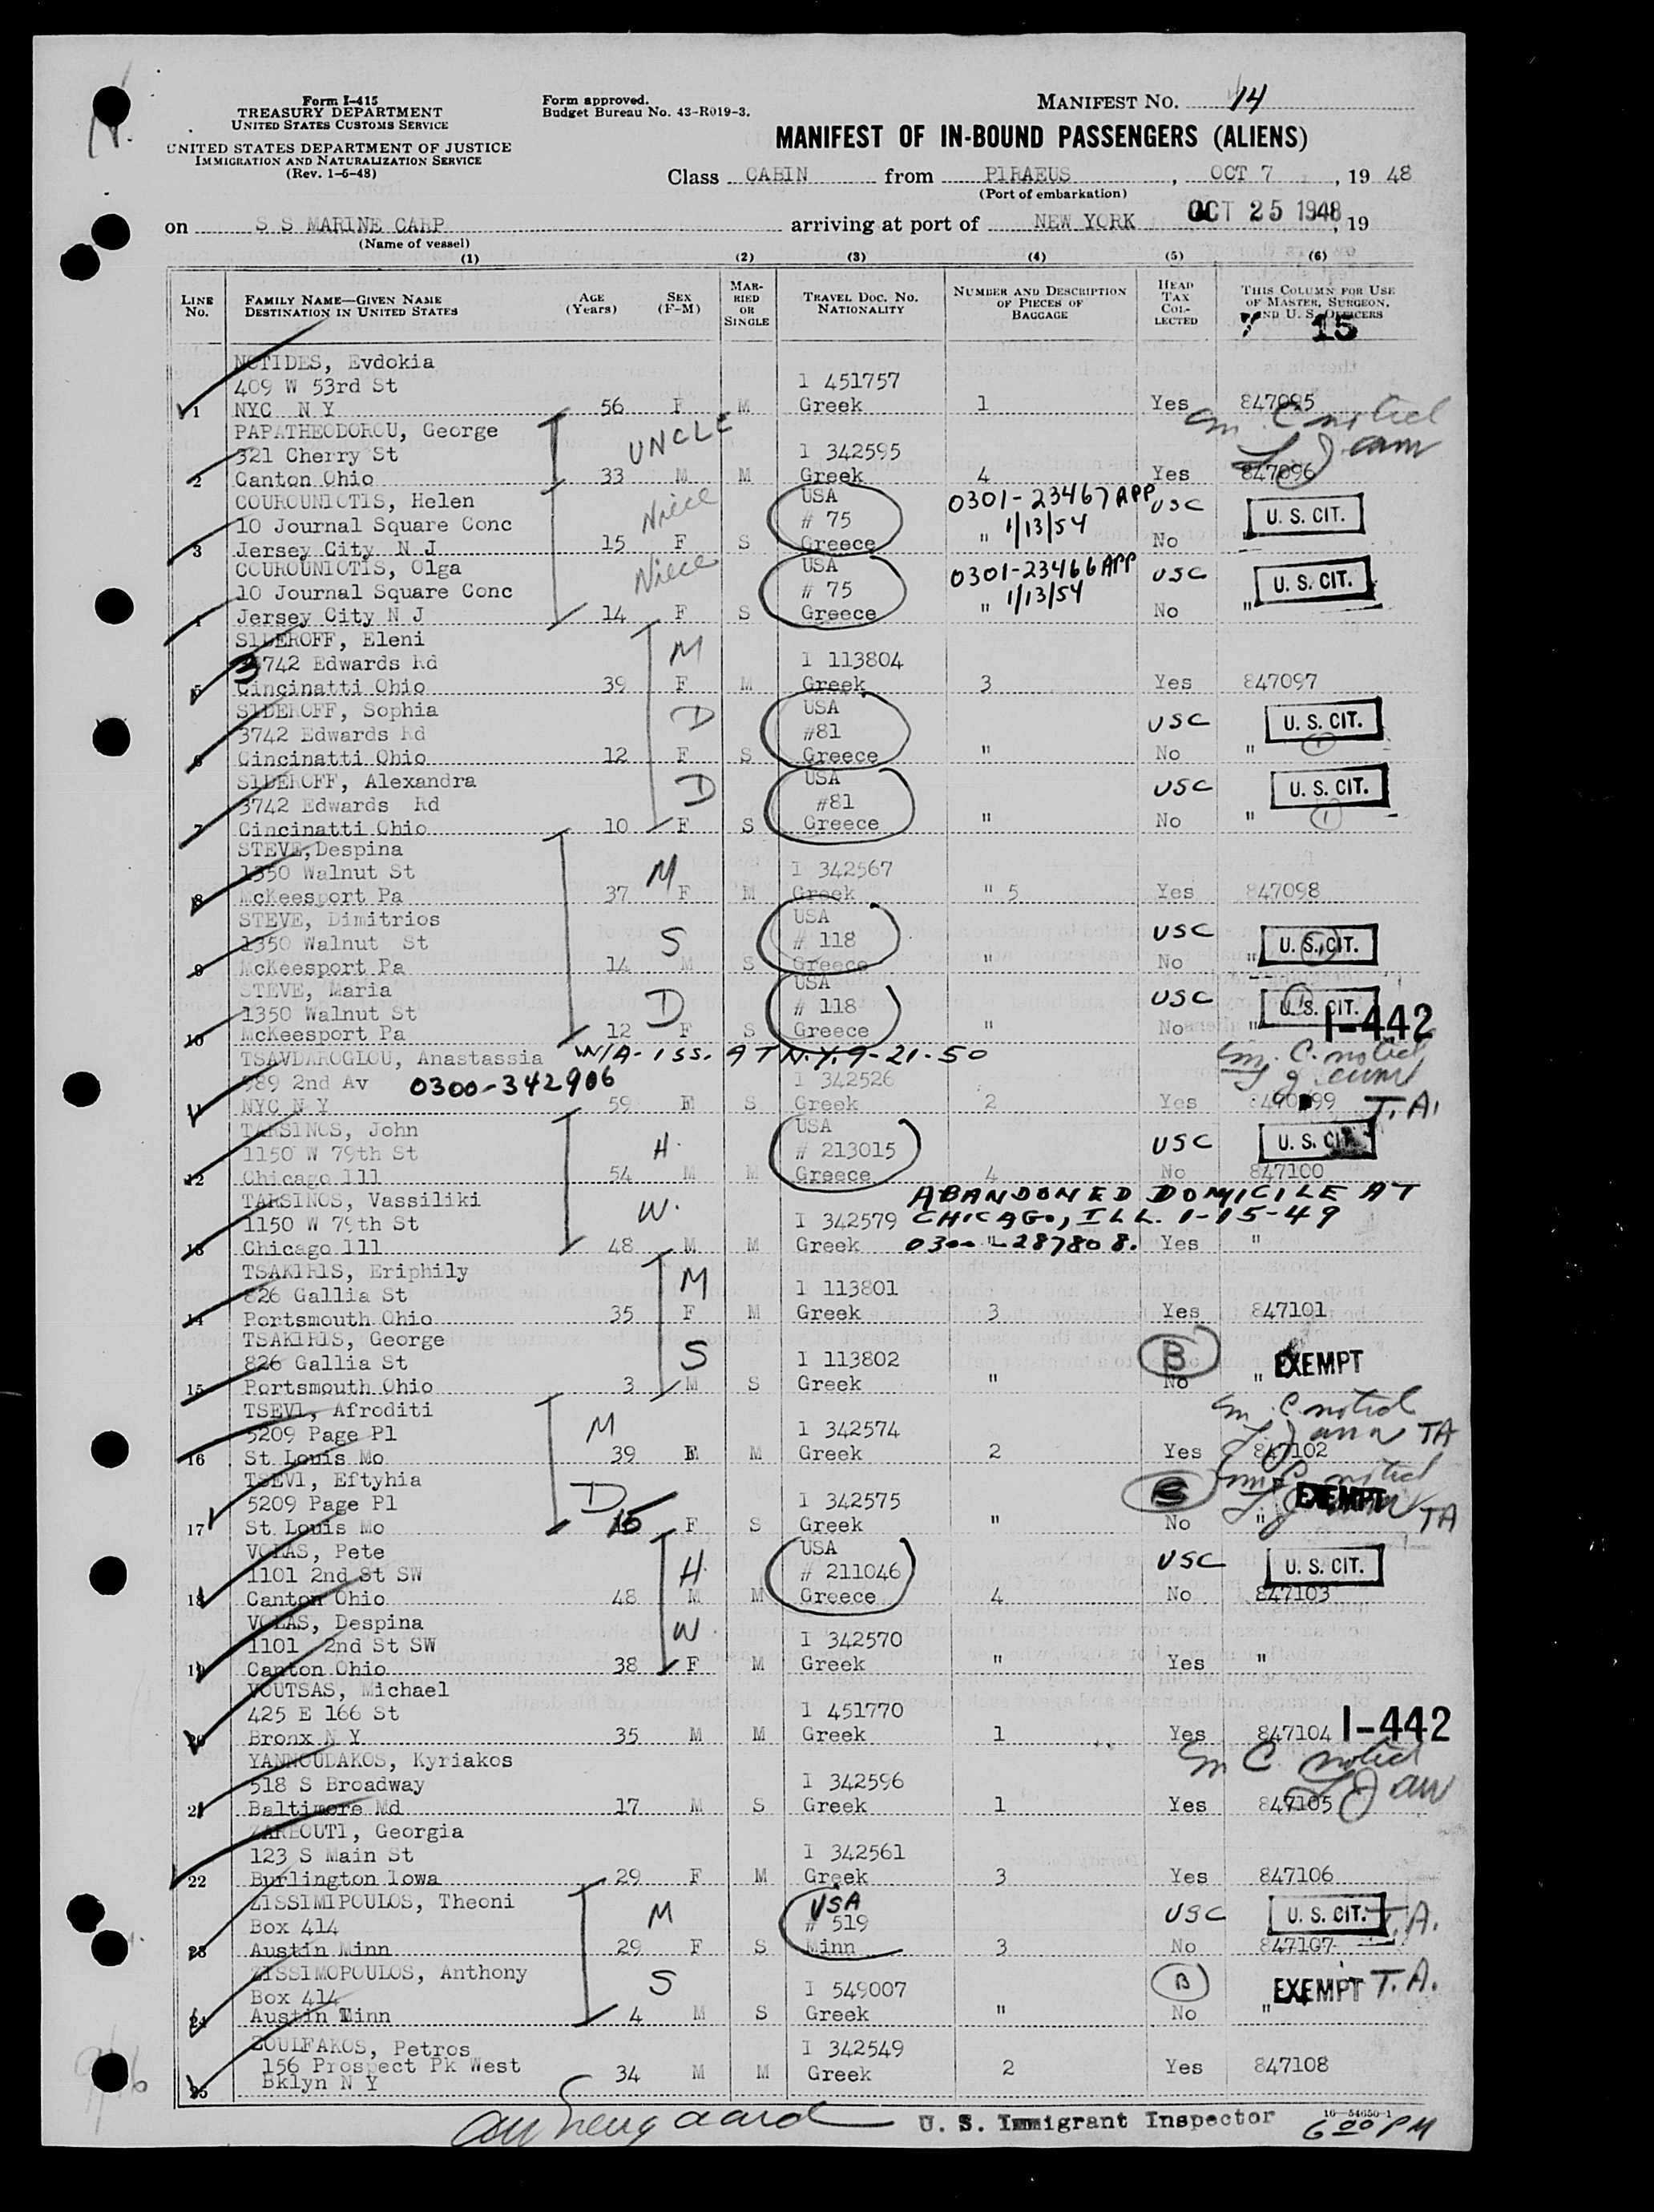 Form I-415
TREASURY DEPARTMENT
UNITED STATES CUSTOMS SERVICE
UNITED STATES DEPARTMENT OF JUSTICE
IMMIGRATION AND NATURALIZATION SERVICE
(Rev. 1-6-48)
Form approved.
Budget Bureau No. 43-R019-3.
MANIFEST NO. 14
MANIFEST OF IN-BOUND PASSENGERS (ALIENS)
Class CABIN from PIRAEUS, OCT 7, 19 48
(Port of embarkation)
on S S MARINE CARP arriving at port of NEW YORK OCT 25 1948, 19
(Name of vessel)
(1) (2) (3) (4) (5) (6)
LINE No. FAMILY NAME—GIVEN NAME DESTINATION IN UNITED STATES AGE (Years) SEX (F-M) MARRIED OR SINGLE TRAVEL DOC. NO. NATIONALITY NUMBER AND DESCRIPTION OF PIECES OF BAGGAGE HEAD TAX COLLECTED THIS COLUMN FOR USE OF MASTER, SURGEON, AND U. S. OFFICERS
15
NOTIDES, Evdokia
409 W 53rd St 1 451757
1 NYC N Y 56 F M Greek 1 Yes 847095
PAPATHEODOROU, George UNCLE
321 Cherry St 1 342595
2 Canton Ohio 33 M M Greek 4 Yes 847096
COUROUNIOTIS, Helen Niece USA 0301-23467 APP USC U. S. CIT.
10 Journal Square Conc # 75 1/13/54
3 Jersey City N J 15 F S Greece " No "
COUROUNIOTIS, Olga Niece USA 0301-23466 APP USC U. S. CIT.
10 Journal Square Conc # 75 1/13/54
4 Jersey City N J 14 F S Greece " No "
SIDEROFF, Eleni M
3742 Edwards Rd 1 113804
5 Cincinatti Ohio 39 F M Greek 3 Yes 847097
SIDEROFF, Sophia D USA USC U. S. CIT.
3742 Edwards Rd #81
6 Cincinatti Ohio 12 F S Greece " No " 1
SIDEROFF, Alexandra D USA USC U. S. CIT.
3742 Edwards Rd #81
7 Cincinatti Ohio 10 F S Greece " No " 1
STEVE, Despina M
1350 Walnut St 1 342567
8 McKeesport Pa 37 F M Greek " 5 Yes 847098
STEVE, Dimitrios S USA USC U. S. CIT.
1350 Walnut St # 118
9 McKeesport Pa 14 M S Greece " No "
STEVE, Maria D USA USC U. S. CIT.
1350 Walnut St # 118 I-442
10 McKeesport Pa 12 F S Greece " No "
TSAVDAROGLOU, Anastassia W/A- ISS. AT N.Y. 9-21-50
989 2nd Av 0300-342906 1 342526
11 NYC N Y 59 F S Greek 2 Yes 847099 T.A.
TARSINOS, John H. USA USC U. S. CIT.
1150 W 79th St # 213015
12 Chicago Ill 54 M M Greece 4 No 847100
TARSINOS, Vassiliki W. ABANDONED DOMICILE AT
1150 W 79th St 1 342579 CHICAGO, ILL. 1-15-49
13 Chicago Ill 48 M M Greek 0300-287808. " Yes "
TSAKIRIS, Eriphily M
826 Gallia St 1 113801
14 Portsmouth Ohio 35 F M Greek 3 Yes 847101
TSAKIRIS, George S B EXEMPT
826 Gallia St 1 113802
15 Portsmouth Ohio 3 M S Greek " No "
TSEVI, Afroditi M
5209 Page Pl 1 342574 TA
16 St Louis Mo 39 F M Greek 2 Yes 847102
TSEVI, Eftyhia D EXEMPT
5209 Page Pl 1 342575 TA
17 St Louis Mo 15 F S Greek " No "
VOLAS, Pete H. USA USC U. S. CIT.
1101 2nd St SW # 211046
18 Canton Ohio 48 M M Greece 4 No 847103
VOLAS, Despina W.
1101 2nd St SW 1 342570
19 Canton Ohio 38 F M Greek " Yes "
VOUTSAS, Michael
425 E 166 St 1 451770
20 Bronx N Y 35 M M Greek 1 Yes 847104 I-442
YANNOULAKOS, Kyriakos
518 S Broadway 1 342596
21 Baltimore Md 17 M S Greek 1 Yes 847105
ZARBOUTI, Georgia
123 S Main St 1 342561
22 Burlington Iowa 29 F M Greek 3 Yes 847106
ZISSIMIPOULOS, Theoni M USA USC U. S. CIT. T.A.
Box 414 # 519
23 Austin Minn 29 F S Minn 3 No 847107
ZISSIMOPOULOS, Anthony S B EXEMPT T.A.
Box 414 1 549007
24 Austin Minn 4 M S Greek " No "
ZOULFAKOS, Petros 1 342549
156 Prospect Pk West
25 Bklyn N Y 34 M M Greek 2 Yes 847108
U. S. Immigrant Inspector
16—54650-1
6 00 PM